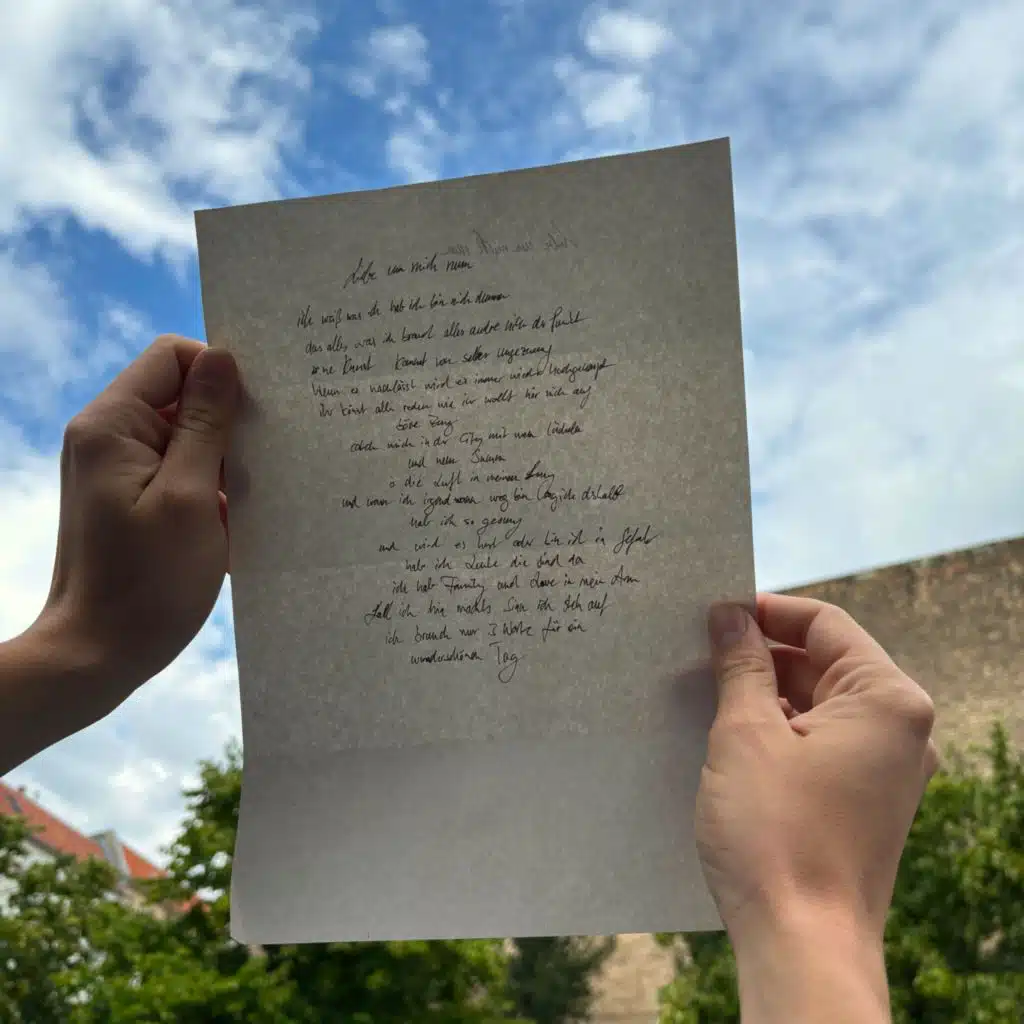 Liebe um mich rum
ich weiß was ich hab ich bin nich dumm
das alles was ich brauch alles andre nich der Punkt
is ne Kunst kommt von selber ungezwung
Wenn es nachlässt wird es immer wieder hochgepumpt
ihr könnt alle reden wie ihr wollt hör nich auf
böse Zung
catch mich in der City mit mein
und mein
o die Luft in meiner Lung
und wenn ich irgendwann weg bin deshalb
hab ich so gesung
und wird es hart oder bin ich in Gefahr
hab ich Leute die sind da
ich hab Family und Love in mein Arm
Fall ich hin machts Sinn ich steh auf
ich brauch nur 3 Worte für ein
wunderschönen Tag